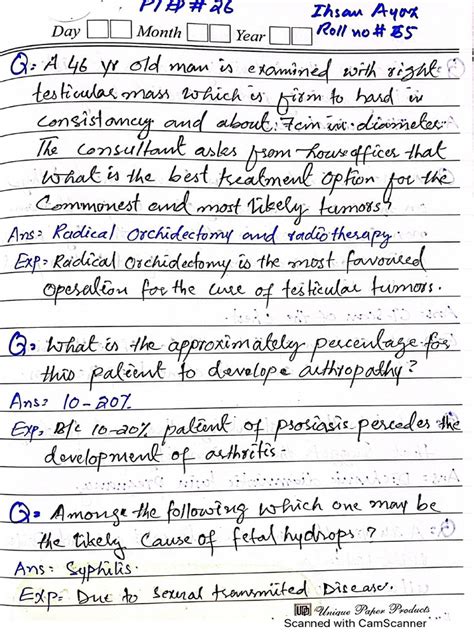 PTED # 26
Ihsan Ayoz
Day Month Year
Roll no # 85
Q: A 46 yr old man is examined with right
testicular mass which is firm to hard in
consistancy and about 7cm in diameter.
The consultant asks from house officer that
what is the best treatment option for the
Commonest and most likely tumors?
Ans: Radical Orchidectomy and radiotherapy.
Exp: Radical Orchidectomy is the most favoured
operation for the cure of testicular tumors.
Q: What is the approximately percentage for
this patient to develope arthropathy?
Ans: 10-20%
Exp, B/c 10-20% patient of psoriasis percedes the
development of arthritis.
Q: Amonge the following which one may be
the likely Cause of fetal hydrops?
Ans: Syphilis.
Exp: Due to Sexual transmitted Disease.
UP Unique Paper Products
Scanned with CamScanner